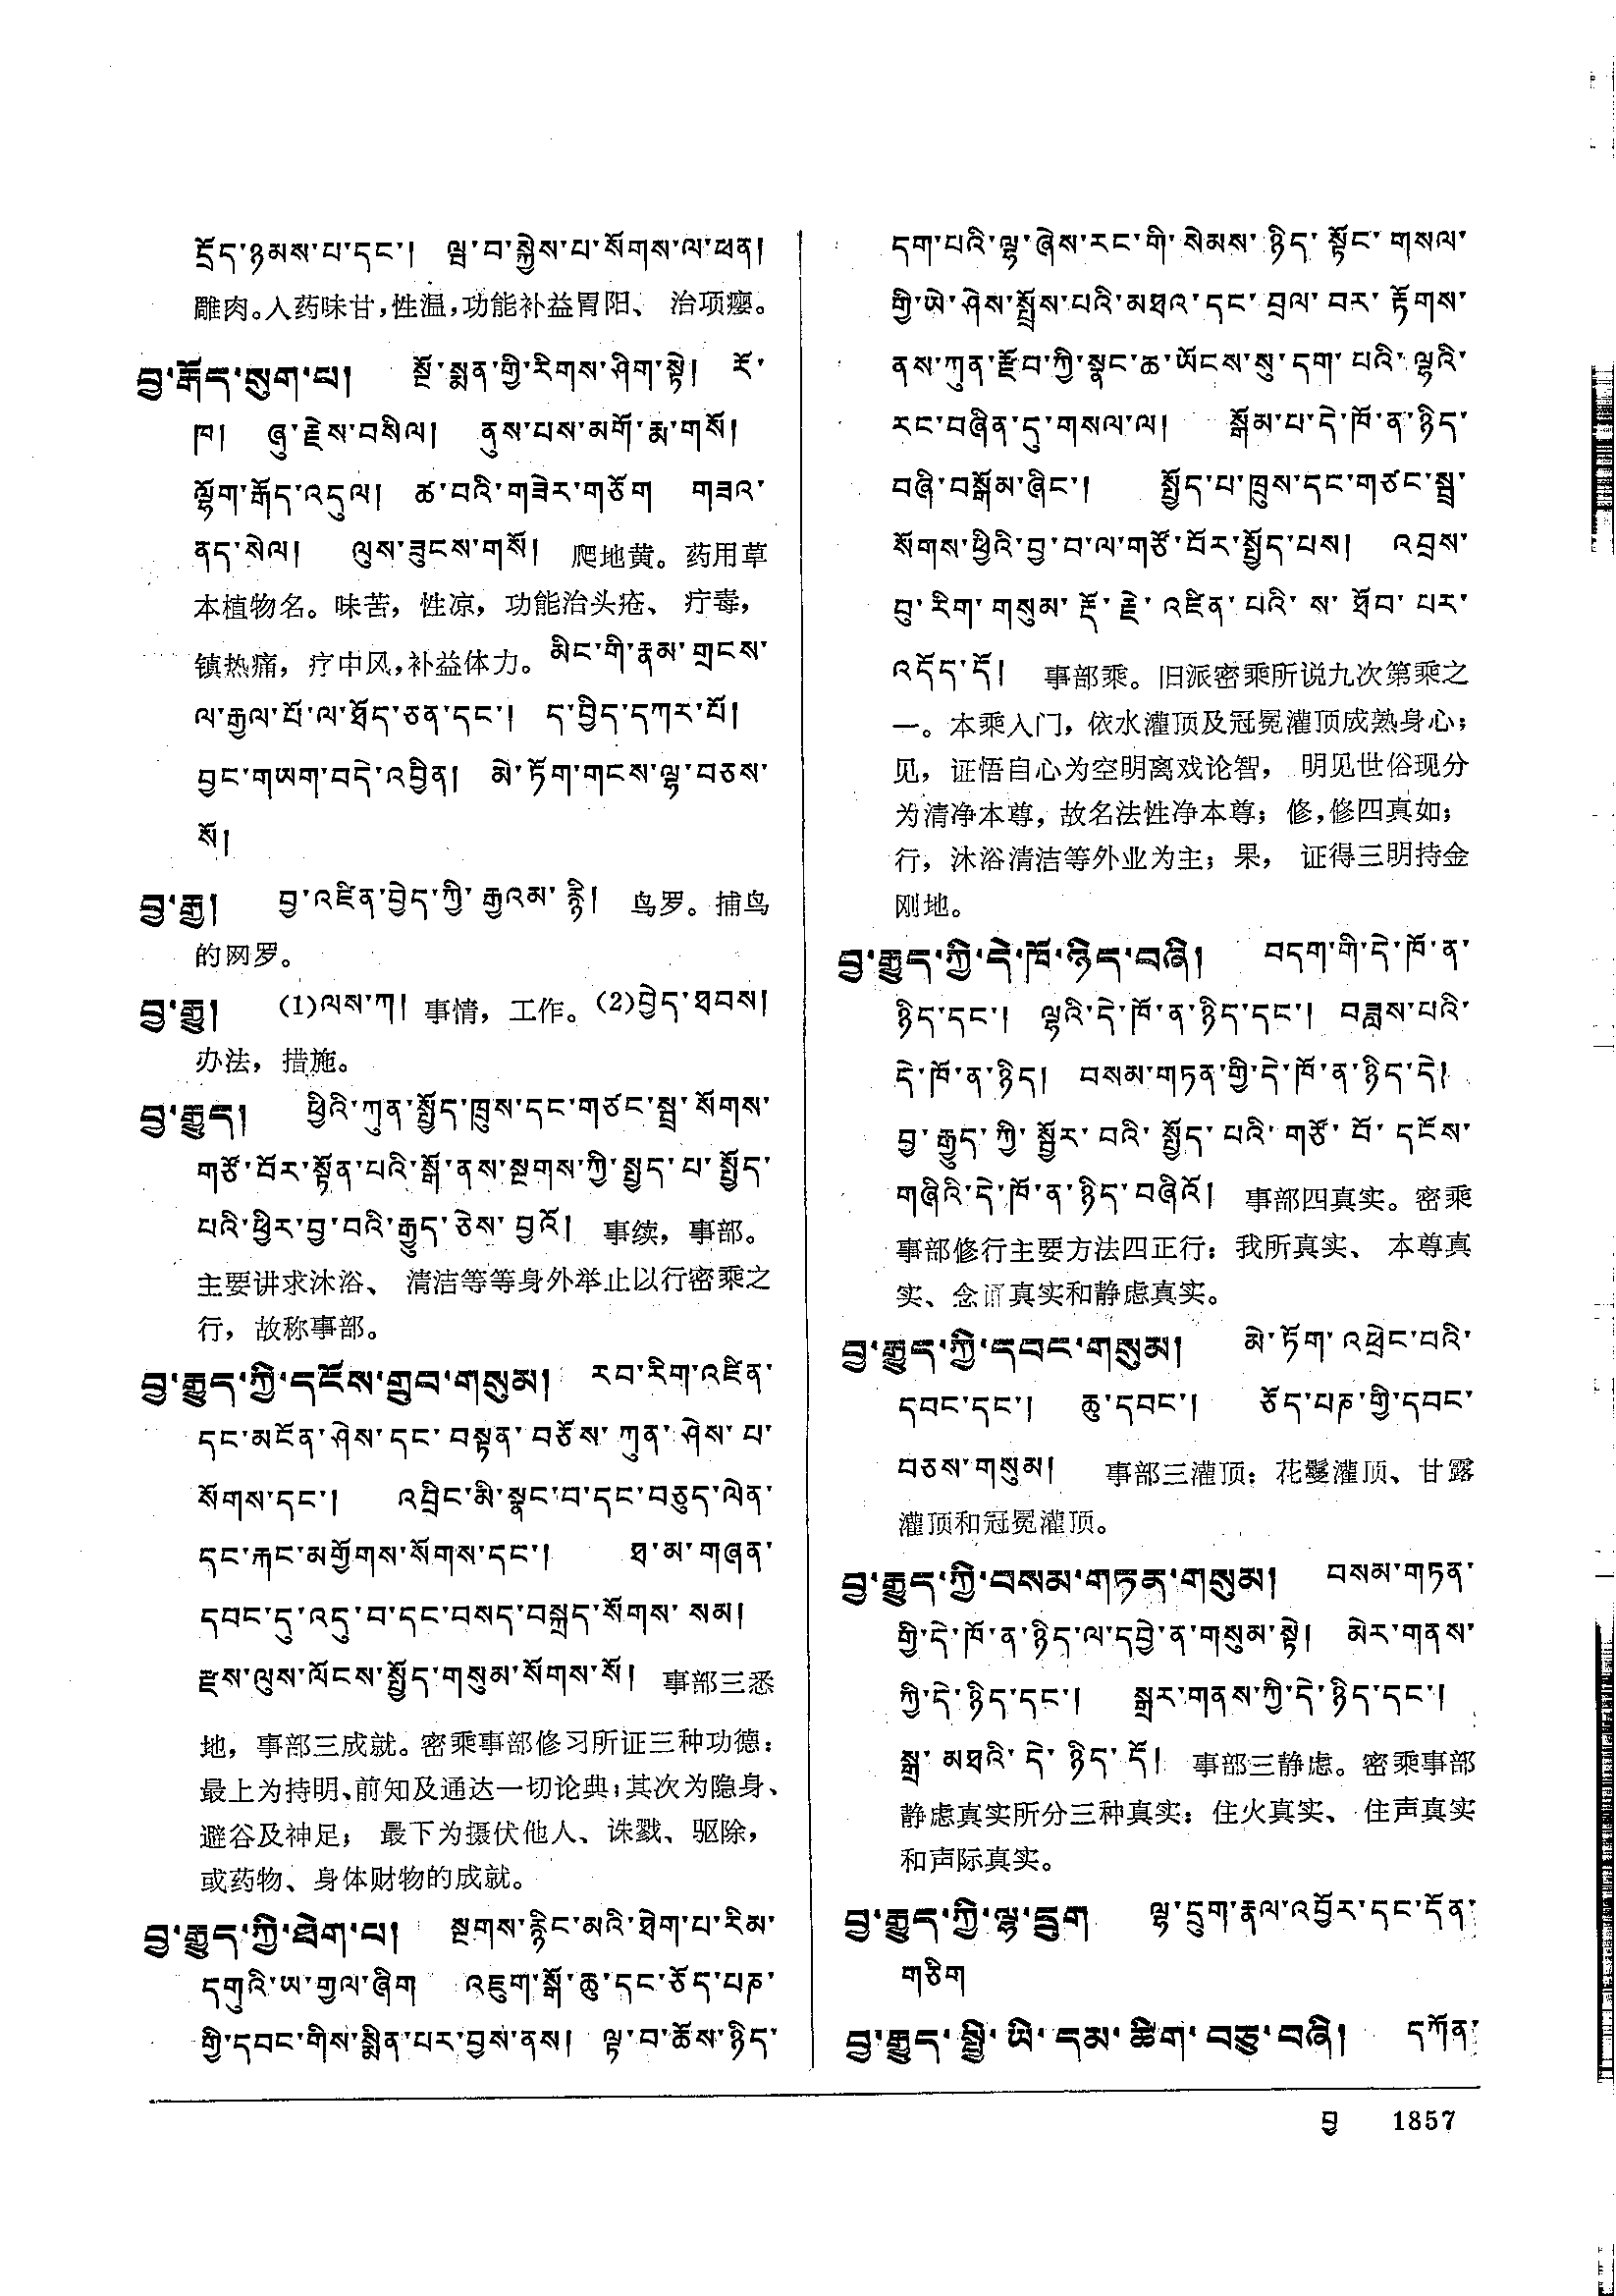 དྲོད་ཉམས་པ་དང་། ལྦ་བ་སྐྱེས་པ་སོགས་ལ་ཕན།
雕肉。入药味甘，性温，功能补益胃阳、治项瘿。
བྱ་རྒོད་སུག་པ། སྔོ་སྨན་གྱི་རིགས་ཤིག་སྟེ། རོ་
ཁ། ཞུ་རྗེས་བསིལ། ནུས་པས་མགོ་རྨ་གསོ།
ལྷོག་རྒོད་འདུལ། ཚ་བའི་གཟེར་གཅོག གཟའ་
ནད་སེལ། ལུས་ཟུངས་གསོ། 爬地黄。药用草
本植物名。味苦，性凉，功能治头疮、疔毒，
镇热痛，疗中风，补益体力。མིང་གི་རྣམ་གྲངས་
ལ་རྒྱལ་པོ་ལ་ཐོད་ཅན་དང་། ད་བྱིད་དཀར་པོ།
བྱང་གཡག་བདེ་འབྱིན། མེ་ཏོག་གངས་ལྷ་བཅས་
སོ།
བྱ་རྒྱ། བྱ་འཛིན་བྱེད་ཀྱི་རྒྱའམ་རྙི། 鸟罗。捕鸟
的网罗。
བྱ་རྒྱུ། (1)ལས་ཀ། 事情，工作。(2)བྱེད་ཐབས།
办法，措施。
བྱ་རྒྱུད། ཕྱིའི་ཀུན་སྤྱོད་ཁྲུས་དང་གཙང་སྦྲ་སོགས་
གཙོ་བོར་སྟོན་པའི་སྒོ་ནས་སྔགས་ཀྱི་སྤྱད་པ་སྤྱོད་
པའི་ཕྱིར་བྱ་བའི་རྒྱུད་ཅེས་བྱའོ། 事续，事部。
主要讲求沐浴、清洁等等身外举止以行密乘之
行，故称事部。
བྱ་རྒྱུད་ཀྱི་དངོས་གྲུབ་གསུམ། རབ་རིག་འཛིན་
དང་མངོན་ཤེས་དང་བསྟན་བཅོས་ཀུན་ཤེས་པ་
སོགས་དང་། འབྲིང་མི་སྣང་བ་དང་བཅུད་ལེན་
དང་རྐང་མགྱོགས་སོགས་དང་། ཐ་མ་གཞན་
དབང་དུ་འདུ་བ་དང་བསད་བསྐྲད་སོགས་སམ།
རྫས་ལུས་ལོངས་སྤྱོད་གསུམ་སོགས་སོ། 事部三悉
地，事部三成就。密乘事部修习所证三种功德：
最上为持明、前知及通达一切论典；其次为隐身、
避谷及神足；最下为摄伏他人、诛戮、驱除，
或药物、身体财物的成就。
བྱ་རྒྱུད་ཀྱི་ཐེག་པ། སྔགས་རྙིང་མའི་ཐེག་པ་རིམ་
དགུའི་ཡ་གྱལ་ཞིག འཇུག་སྒོ་ཆུ་དང་ཅོད་པཎ་
གྱི་དབང་གིས་སྨིན་པར་བྱས་ནས། ལྟ་བ་ཆོས་ཉིད་
དག་པའི་ལྷ་ཞེས་རང་གི་སེམས་ཉིད་སྟོང་གསལ་
གྱི་ཡེ་ཤེས་སྤྲོས་པའི་མཐའ་དང་བྲལ་བར་རྟོགས་
ནས་ཀུན་རྫོབ་ཀྱི་སྣང་ཆ་ཡོངས་སུ་དག་པའི་ལྷའི་
རང་བཞིན་དུ་གསལ་ལ། སྒོམ་པ་དེ་ཁོ་ན་ཉིད་
བཞི་བསྒོམ་ཞིང་། སྤྱོད་པ་ཁྲུས་དང་གཙང་སྦྲ་
སོགས་ཕྱིའི་བྱ་བ་ལ་གཙོ་བོར་སྤྱོད་པས། འབྲས་
བུ་རིག་གསུམ་རྡོ་རྗེ་འཛིན་པའི་ས་ཐོབ་པར་
འདོད་དོ། 事部乘。旧派密乘所说九次第乘之
一。本乘入门，依水灌顶及冠冕灌顶成熟身心；
见，证悟自心为空明离戏论智，明见世俗现分
为清净本尊，故名法性净本尊；修，修四真如；
行，沐浴清洁等外业为主；果，证得三明持金
刚地。
བྱ་རྒྱུད་ཀྱི་དེ་ཁོ་ཉིད་བཞི། བདག་གི་དེ་ཁོ་ན་
ཉིད་དང་། ལྷའི་དེ་ཁོ་ན་ཉིད་དང་། བཟླས་པའི་
དེ་ཁོ་ན་ཉིད། བསམ་གཏན་གྱི་དེ་ཁོ་ན་ཉིད་དེ།
བྱ་རྒྱུད་ཀྱི་སྦྱོར་བའི་སྤྱོད་པའི་གཙོ་བོ་དངོས་
གཞིའི་དེ་ཁོ་ན་ཉིད་བཞིའོ། 事部四真实。密乘
事部修行主要方法四正行：我所真实、本尊真
实、念诵真实和静虑真实。
བྱ་རྒྱུད་ཀྱི་དབང་གསུམ། མེ་ཏོག་འཕྲེང་བའི་
དབང་དང་། ཆུ་དབང་། ཅོད་པཎ་གྱི་དབང་
བཅས་གསུམ། 事部三灌顶：花鬘灌顶、甘露
灌顶和冠冕灌顶。
བྱ་རྒྱུད་ཀྱི་བསམ་གཏན་གསུམ། བསམ་གཏན་
གྱི་དེ་ཁོ་ན་ཉིད་ལ་དབྱེ་ན་གསུམ་སྟེ། མེར་གནས་
ཀྱི་དེ་ཉིད་དང་། སྒྲར་གནས་ཀྱི་དེ་ཉིད་དང་།
སྒྲ་མཐའི་དེ་ཉིད་དོ། 事部三静虑。密乘事部
静虑真实所分三种真实：住火真实、住声真实
和声际真实。
བྱ་རྒྱུད་ཀྱི་ལྷ་དྲུག ལྷ་དྲུག་རྣལ་འབྱོར་དང་དོན་
གཅིག
བྱ་རྒྱུད་སྤྱི་ཡི་དམ་ཚིག་བཅུ་བཞི། དཀོན་
བྱ 1857